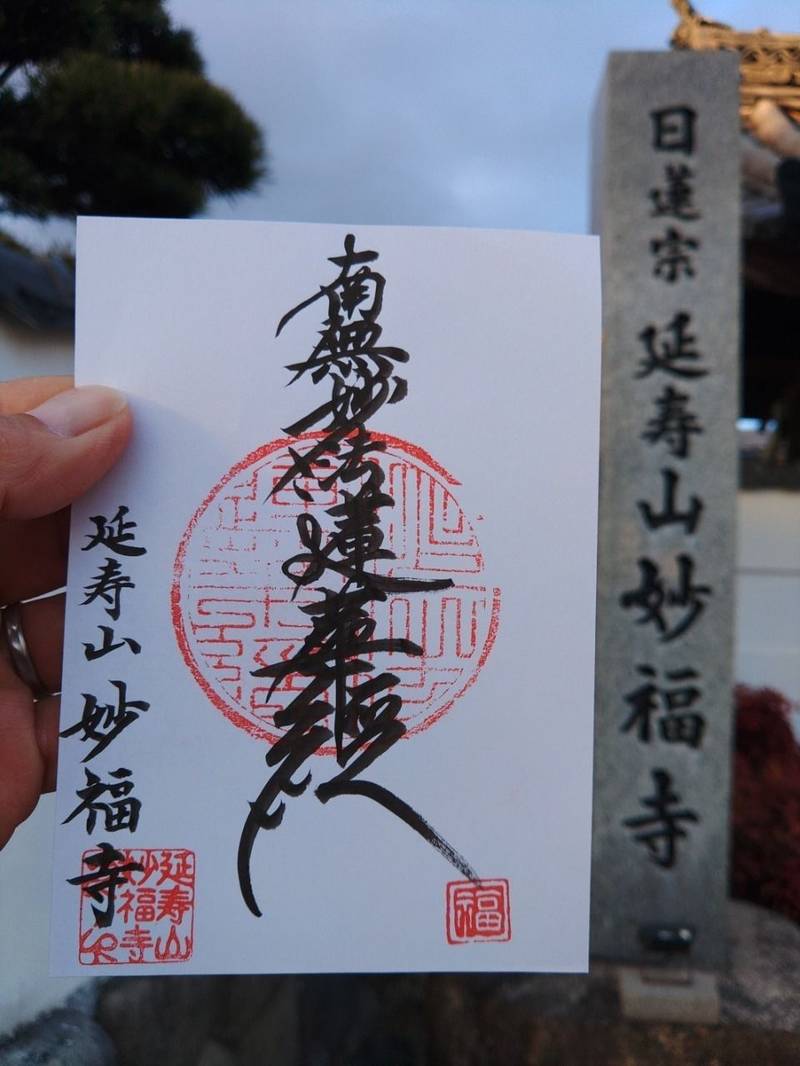 日蓮宗 延寿山妙福寺
南無妙法蓮華経
延寿山 妙福寺
延寿山
妙福寺
福